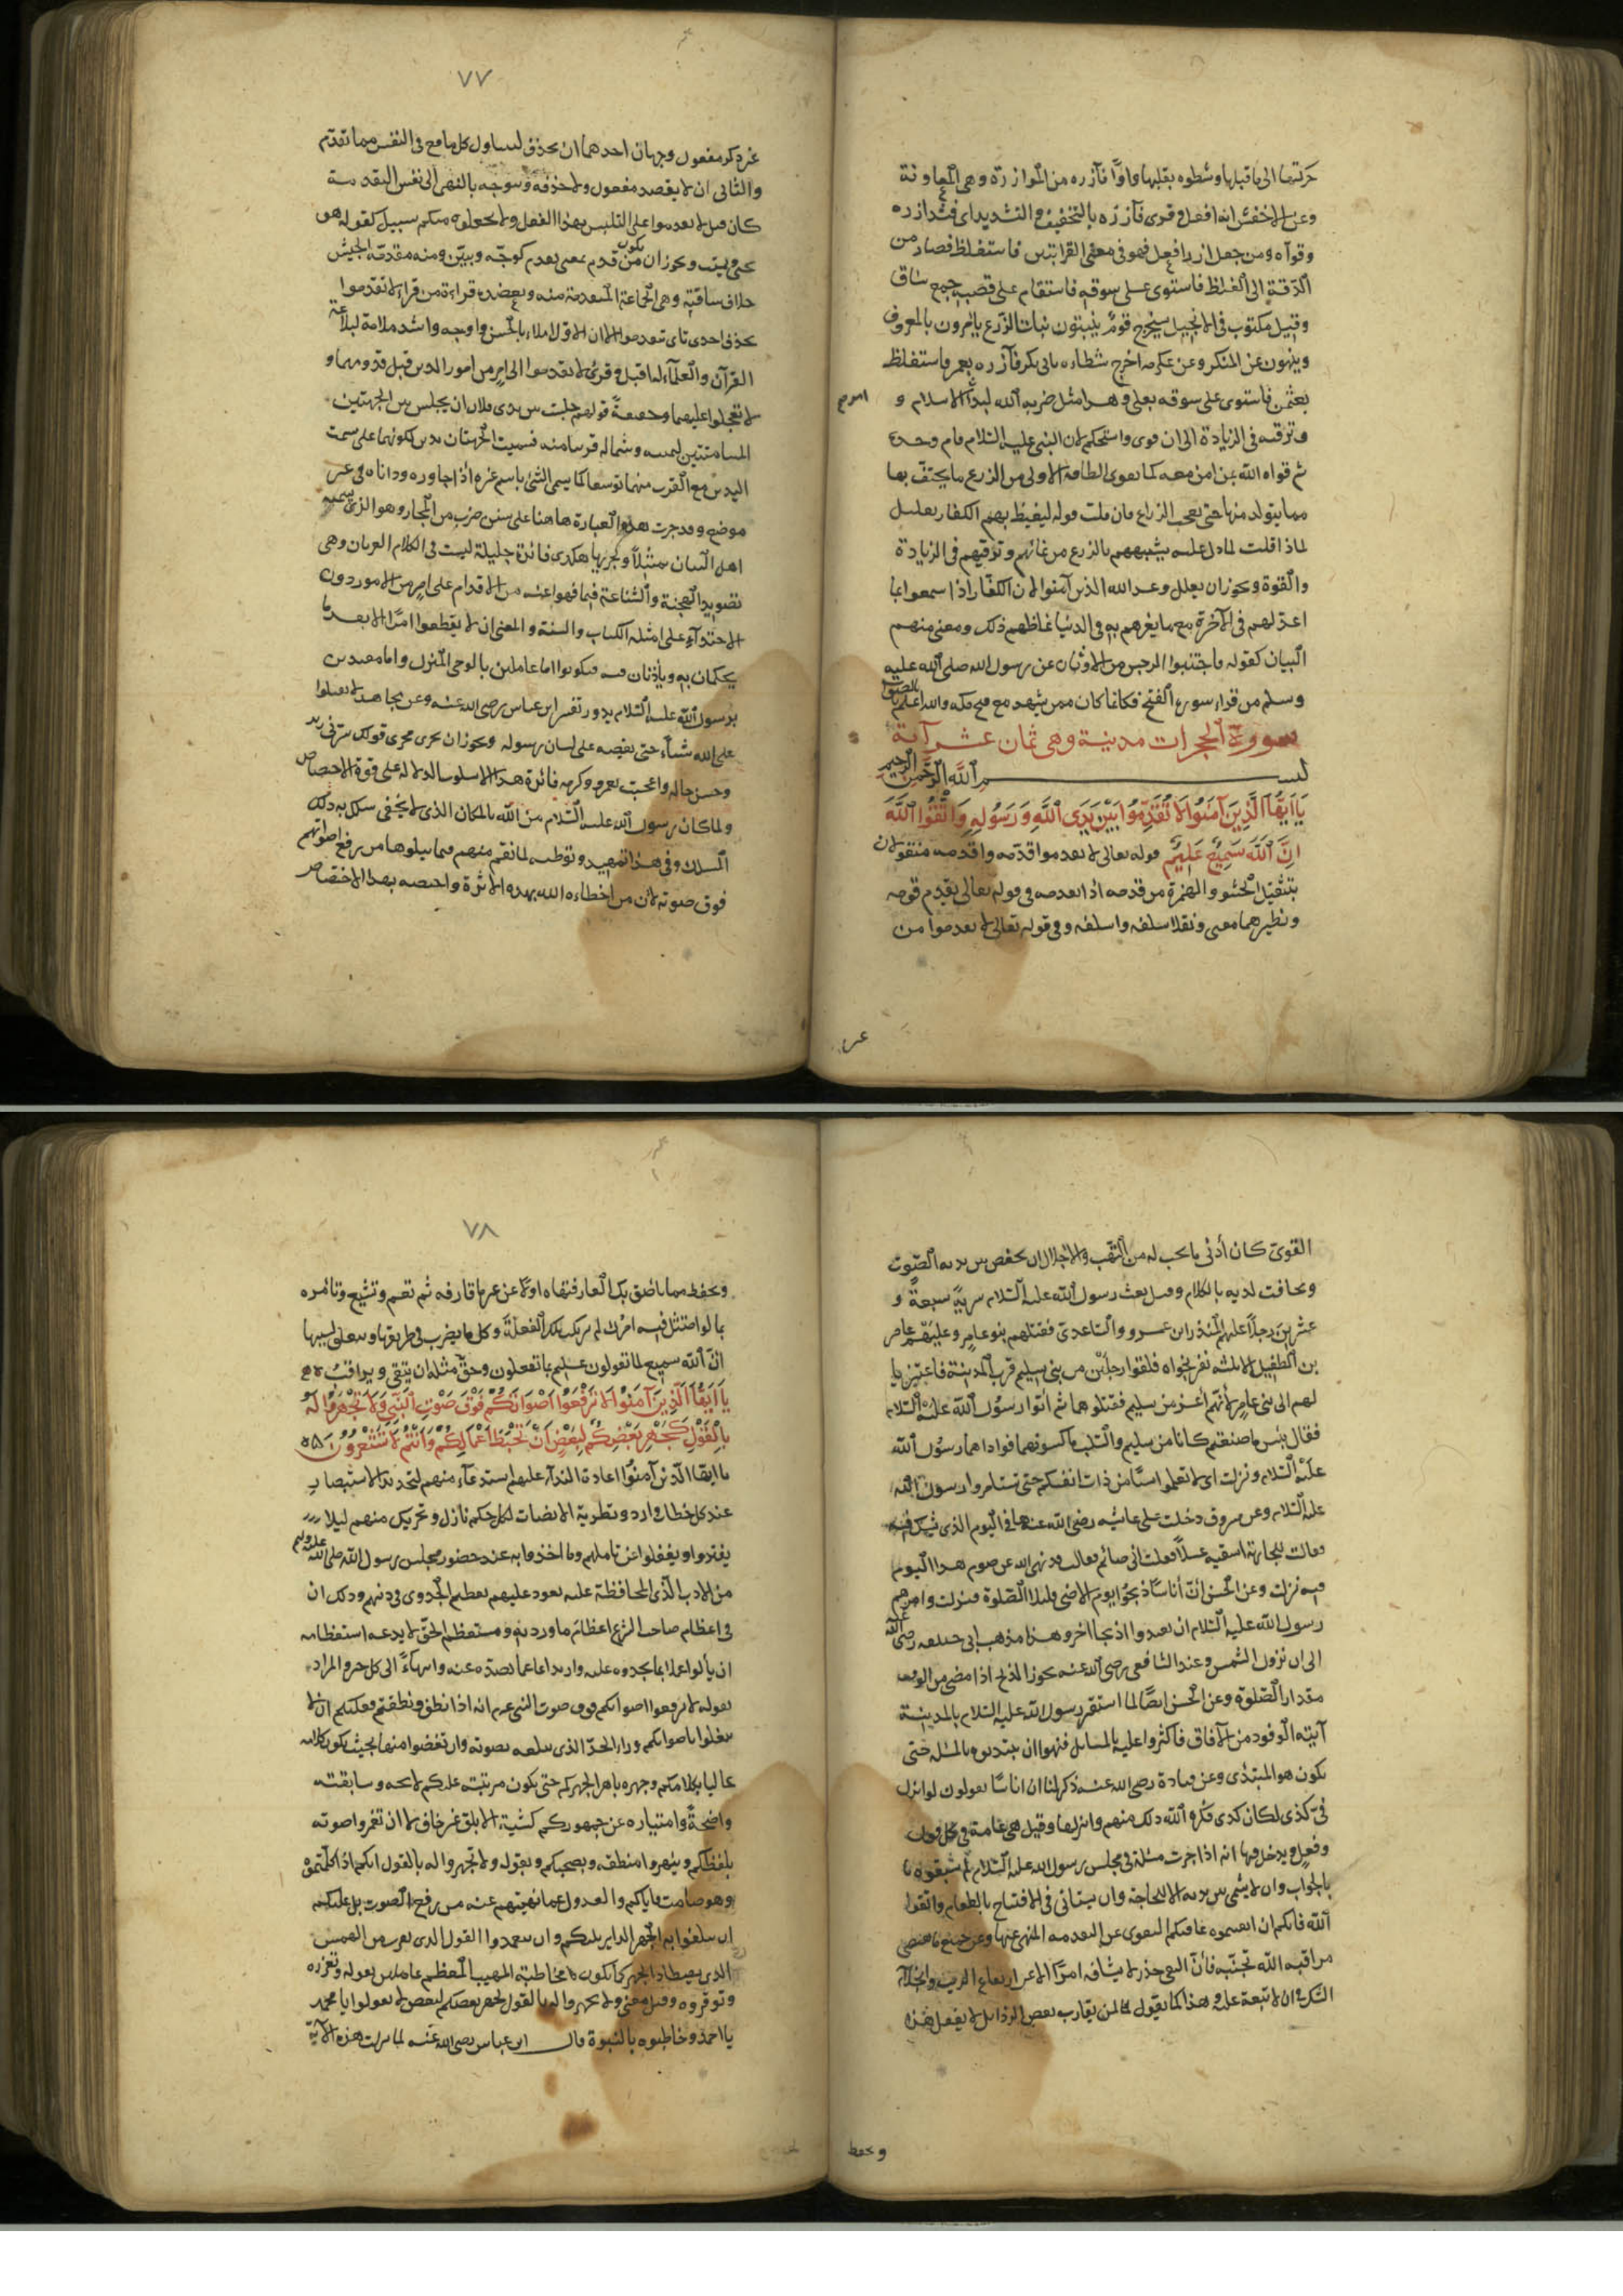 حركتها الى ما قبلها وشطوه بقلبها واوا فآزره من الموازرة وهى المعاونة
وعن الاخفش انه افعل وقرى فآزره بالتخفيف والتشديد اى فشد ازره
وقواه ومن جعل ازر افعل فهو فى معنى القراءتين فاستغلظ فصار من
الدقة الى الغلظ فاستوى على سوقه فاستقام على قصبه جمع ساق
وقيل مكتوب فى الانجيل سيخرج قوم ينبتون نبات الزرع يامرون بالمعروف
وينهون عن المنكر وعن عكرمه اخرج شطاه بابى بكر فآزره بعمر فاستغلظ
بعثمن فاستوى على سوقه بعلى وهذا مثل ضربه الله لبدأ الاسلام و
وترقيه فى الزيادة الى ان قوى واستحكم لان النبى عليه السلام قام وحده
ثم قواه الله بمن امن معه كما يقوى الطاقة الاولى من الزرع ما يحتف بها
مما يتولد منها حتى يعجب الزراع فان قلت قوله ليغيظ بهم الكفار تعليل
لماذا قلت لما دل عليه تشبيههم بالزرع من نمائهم وترقيهم فى الزيادة
والقوة ويجوز ان يعلل وعد الله الذين آمنوا لان الكفار اذا سمعوا بما
اعد لهم فى الآخرة مع ما يعزهم به فى الدنيا غاظهم ذلك ومعنى منهم
البيان كقوله فاجتنبوا الرجس من الاوثان عن رسول الله صلى الله عليه
وسلم من قراء سورة الفتح فكانما كان ممن شهد مع فتح مكه والله اعلم بالصواب
سورة الحجرات مدنية وهى ثمان عشر آية
بسم الله الرحمن الرحيم
يَا اَيُّهَا الَّذِينَ آمَنُوا لَا تُقَدِّمُوا بَيْنَ يَدَىِ اللَّهِ وَرَسُولِهِ وَاتَّقُوا اللَّهَ
اِنَّ اللَّهَ سَمِيعٌ عَلِيمٌ قوله تعالى لا تقدموا قدمه واقدمه منقولان
بتثقيل الحشو والهمزة من قدمه اذا تقدمه فى قوله تعالى يقدم قومه
ونظيرهما معنى ونقلا سلفه واسلفه وفى قوله تعالى لا تقدموا من
٧٧
غير ذكر مفعول وجهان احدهما ان يحذف ليتناول كل ما وقع فى النفس مما تقدم
والثانى ان لا يقصد مفعول ولا حذفه وتتوجه بالنهى الى نفس التقدمة
كانه قيل لا تقدموا على التلبس بهذا الفعل ولا تجعلوه منكم بسبيل كقوله هو
يحيى ويميت ويجوز ان يكون من قدم بمعنى تقدم كوجه وبين ومنه مقدمة الجيش
خلاف ساقته وهى الجماعة المتقدمة منه ويعضده قراءة من قراء لا تقدموا
بحذف احدى تاى تتقدموا الا ان الاول املاء بالحسن واوجه واشد ملامة لبلاغة
القرآن والعلماء له اقبل وقرى لا تقدموا الى امر من امور الدين قبل قدومهما و
لا تعجلوا عليهما وحقيقة قولهم جلست بين يدى فلان ان يجلس بين الجهتين
المسامتتين ليمينه وشماله قريبا منه فسميت الجهتان يدين لكونهما على سمت
اليدين مع القرب منهما توسعا كما يسمى الشئ باسم غيره اذا جاوره وداناه فى غير
موضع وقد جرت هذه العبارة هاهنا على سنن ضرب من المجاز وهو الذى يسميه
اهل البيان تمثيلا ولجريها هكذى فائدة جليلة ليست فى الكلام العريان وهى
تصوير الهجنة والشناعة فيما نهوا عنه من الاقدام على امر من الامور دون
الاحتذاء على امثله الكتاب والسنة والمعنى ان لا يقطعوا امرا الا بعد ما
يحكمان به ويأذنان فيه فيكونوا اما عاملين بالوحى المنزل واما مقتدين
برسول الله عليه السلام يدور تفسير ابن عباس رضى الله عنه وعن مجاهد لا تعتلوا
على الله شيأ حتى يقصه على لسان رسوله ويجوز ان يجرى مجرى قولك سرنى زيد
وحسن حاله واعجبت بعمرو وكرمه فائدة هذا الاسلوب الدلالة على قوة الاختصاص
ولما كان رسول الله عليه السلام من الله بالمكان الذى لا يخفى سلك به ذلك
المسلك وفى هذا تمهيد وتوطئه لما نقم منهم فيما يتلوها من رفع اصواتهم
فوق صوته لان من احظاه الله بهذه الاثرة واختصه بهذا الاختصاص
القوى كان أدنى ما يجب له من التهيب والاجلال ان يخفض بين يديه الصوت
ويخافت لديه بالكلام وقيل بعث رسول الله عليه السلام سرية سبعة و
عشرين رجلا عليهم المنذر ابن عمرو والساعدى فقتلهم بنو عامر وعليهم عامر
بن الطفيل الا ثلثه نفر نجواه فلقوا رجلين من بنى سليم قرب المدينة فاعتزيا
لهم الى بنى عامر لأنهم أعز من سليم فقتلوهما ثم أتوا رسول الله عليه السلام
فقال بئس ما صنعتم كانا من سليم والسلب ما كسوتهما فوداهما رسول الله
عليه السلام ونزلت اى لا تعملوا شيئا من ذات انفسكم حتى تستامروا رسول الله
عليه السلام وعن مسروق دخلت على عائشه رضى الله عنها فى اليوم الذى شك فيه
فقالت للجارية اسقيه عسلا فقلت انى صائم فقالت قد نهى الله عن صوم هذا اليوم
فيه نزلت وعن الحسن أن أناسا ذبحوا يوم الاضحى قبل الصلوة فنزلت وامرهم
رسول الله عليه السلام ان يعيدوا ذبحا اخر وهذا مذهب ابى حنيفه رضى الله
الى ان تزول الشمس وعند الشافعى رضى الله عنه يجوز الذبح اذا مضى من الوقت
مقدار الصلوة وعن الحسن ايضا لما استقر رسول الله عليه السلام بالمدينة
آتيته الوفود من الآفاق فأكثروا عليه بالمسايل فنهوا ان يبتدوه بالمسئله حتى
يكون هو المبتدى وعن قتادة رضى الله عنه ذكر لنا ان اناسا يقولون لو انزل
فى كذى لكان كذى فكره الله ذلك منهم وانزلها وقيل هى عامة فى كل قول
وفعل ويدخل فيها انه اذا جرت مسئلة فى مجلس رسول الله عليه السلام لم يسبقوه
بالجواب وان لا يمشى بين يديه الا لحاجة وان يستانى فى الافتتاح بالطعام واتقوا
الله فانكم ان اتقيتموه عاقتكم التقوى عن التقدمه المنهى عنها وعن جميع ما تقتضى
مراقبه الله تجنبه فان التقى حذر لا يشافه امرا الا عن ارتفاع الريب وانجلاء
الشك فى ان لا تبعة عليه وهذا كما يقول لمن يقارب بعض الرذايل لا يفعل هذا
وتحفظ
٧٨
وتحفظ مما يلصق بك العار فتنهاه اولا عن عين ما قارفه ثم تعم وتشيع وتامره
بما لو امتثل فيه امرك لم يرتكب تلك الفعلة وكل ما يضرب فى طريقها ويتعلق بسببها
ان الله سميع لما تقولون عليم بما تفعلون وحق مثله ان يتقى ويراقب
يَا اَيُّهَا الَّذِينَ آمَنُوا لَا تَرْفَعُوا اَصْوَاتَكُمْ فَوْقَ صَوْتِ النَّبِىِّ وَلَا تَجْهَرُوا لَهُ
بِالْقَوْلِ كَجَهْرِ بَعْضِكُمْ لِبَعْضٍ اَنْ تَحْبَطَ اَعْمَالُكُمْ وَاَنْتُمْ لَا تَشْعُرُونَ
يا ايها الذين آمنوا اعادة النداء عليهم استدعاء منهم لتجديد الاستبصار
عند كل خطاب وارد وتطرية الانصات لكل حكم نازل وتحريك منهم ليلا
يفتروا ويغفلوا عن تاملهم وما اخذوا به عند حضور مجلس رسول الله صلى الله عليه وسلم
من الادب الذى المحافظة عليه تعود عليهم بعظيم الجدوى فى دينهم وذلك ان
فى اعظام صاحب الشرع اعظام ما ورد به ومستعظم الحق لا يدعه استعظامه
ان يألوا عملا بما يحدوه عليه وارتداعا عما يصده عنه وانتهاء الى كل خير والمراد
بقوله لا ترفعوا اصواتكم فوق صوت النبى عم انه اذا نطق ونطقتم فعليكم ان لا
تبلغوا باصواتكم وراء الحد الذى يبلغه بصوته وان تغضوا منها بحيث يكون كلامه
عاليا بكلامكم وجهره باهرا لجهركم حتى يكون مزيته عليكم لايحه وسابقته
واضحة وامتيازه عن جمهوركم كشية الابلق غير خاف لا ان تغمروا صوته
بلغطكم وتبهروا منطقه بصخبكم وبقوله ولا تجهروا له بالقول انكم اذا كلمتموه
وهو صامت فاياكم والعدول عما نهيتهم عنه من رفع الصوت بل عليكم
ان لا تبلغوا به الجهر الداير بينكم وان تعمدوا القول الذى يقرب من الهمس
الذى يضاد الجهر كما تكون مخاطبة المهيب المعظم عاملين بقوله وتعزروه
وتوقروه وقيل معنى ولا تجهروا له بالقول كجهر بعضكم لبعض لا تقولوا يا محمد
يا احمد وخاطبوه بالنبوة قال ابن عباس رضى الله عنه لما نزلت هذه الآية